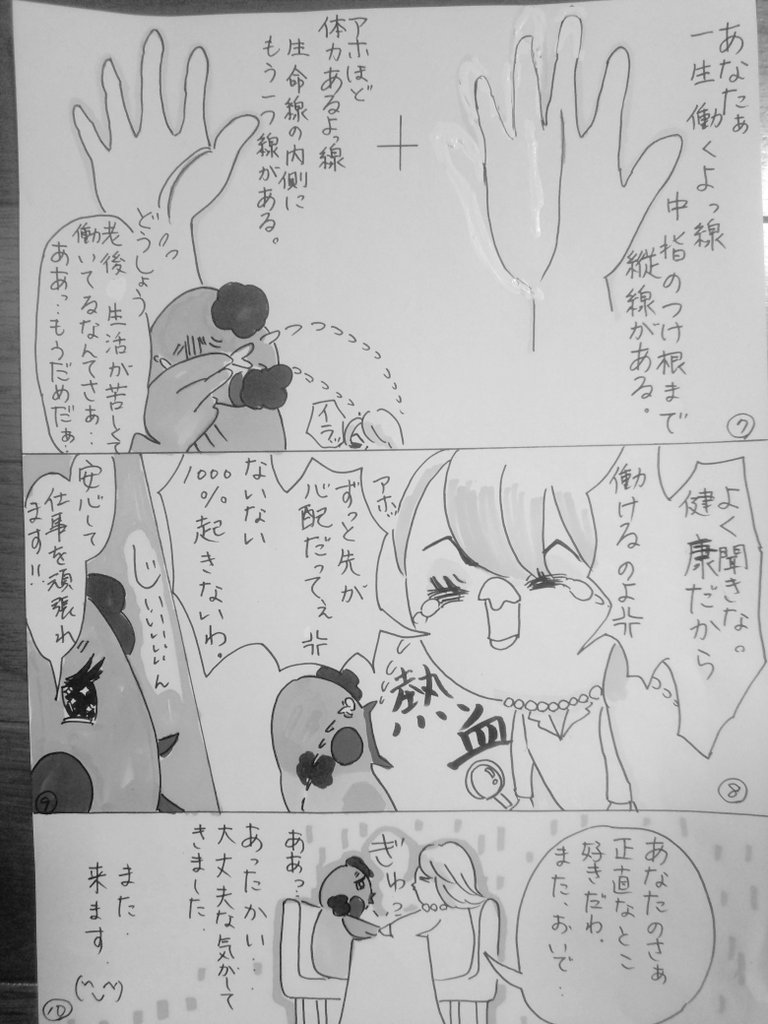 あなたぁ
一生働くよっ線
中指のつけ根まで
縦線がある。
アホほど
体力あるよっ線
生命線の内側に
もう一つ線がある。
どうしょう
老後 生活が苦しくて
働いてるなんてさぁ…
ああっ…もうだめだぁ…
イラッ
⑦
よく聞きな。
健康だから
働けるのよ
アホッ
ずっと先が
心配だってぇ
ないない
100%起きないわ。
熱血
⑧
じぃぃぃぃぃん
安心して
仕事を頑張れ
ます!!
⑨
あなたのさぁ
正直なとこ
好きだわ。
また、おいで…
ぎゅっ
ああっ…
あったかい…
大丈夫な気がして
きました…
また…
来ます…
(^◡^)
⑩